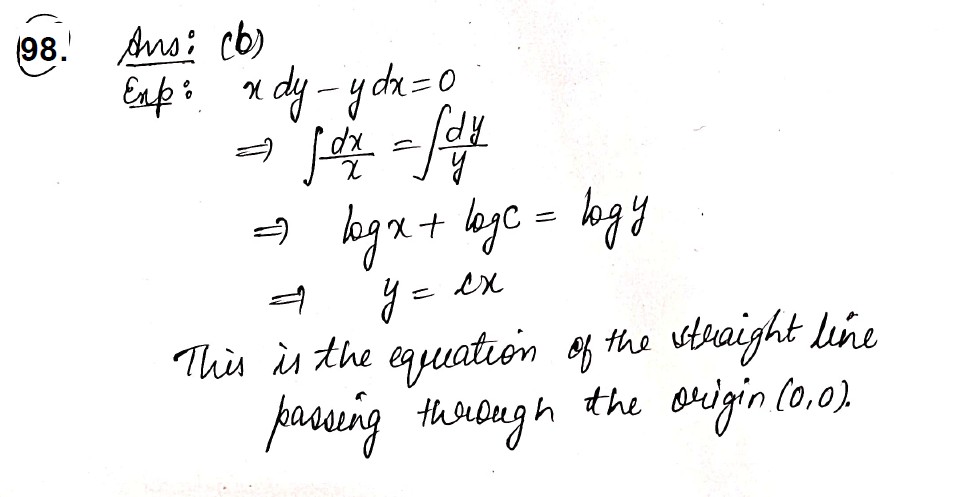 98. Ans: (b)
Exp: x dy - y dx = 0
⇒ ∫ dx/x = ∫ dy/y
⇒ log x + log c = log y
⇒ y = cx
This is the equation of the straight line
passing through the origin (0,0).